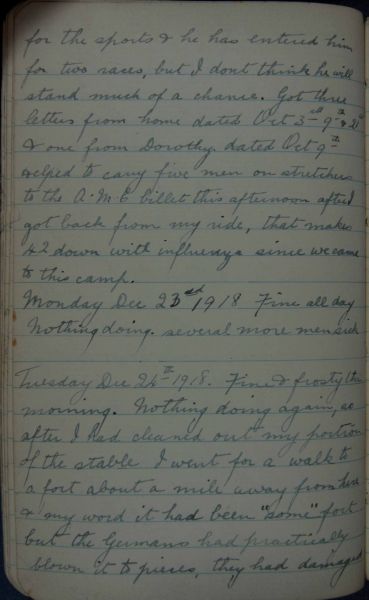 for the sports & he has entered him
for two races, but I dont think he will
stand much of a chance. Got three
letters from home dated Oct 3rd 9th &
& one from Dorothy. dated Oct 9th
helped to carry five men on stretchers
to the A.M.C billet this afternoon after I
got back from my ride, that makes
42 down with influenza since we came
to this camp.
Monday Dec 23rd 1918 Fine all day
Nothing doing. several more men sick
Tuesday Dec 24th 1918. Fine & frosty this
morning. Nothing doing again, so
after I had cleaned out my portion
of the stable I went for a walk to
a fort about a mile away from here
& my word it had been "some" fort
but the Germans had practically
blown it to pieces, they had damaged